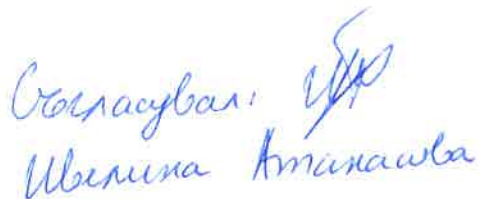 Съгласувал:
Ивелина Атанасова